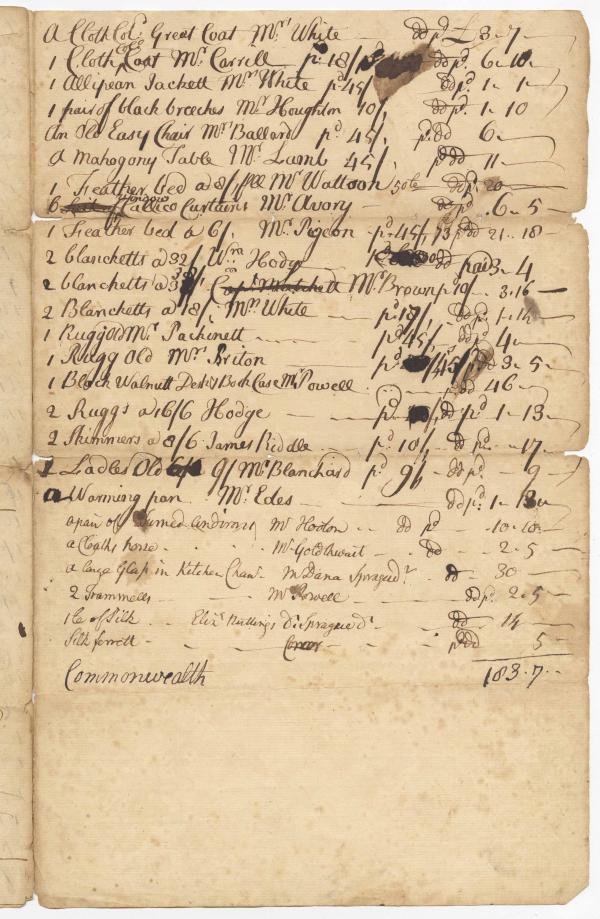 A Cloth Col. Great Coat Mr. White dd pd. £ 3 - 7 -
1 Cloth Coat Mr. Carrill pd. 18/ dd pd. 6 - 10
1 Allipean Jackett Mr. White pd 45/ dd pd. 1 - 1 -
1 pair of black breeches Mr. Houghton 10/ dd pd. 1 - 10
An Old Easy Chair Mr. Ballard pd. 45/ pd. dd 6 -
A Mahogony Table Mr. Lumb 45/ pd dd 11 -
1 Feather bed a 8/ Mr. Wattson dd pd. 20
6 Window Callico Curtains Mr. Avory dd pd. 6 - 5 -
1 Feather bed a 6/ Mr. Pigeon pd. 45/ 73 pd dd 21 - 18 -
2 blancketts a 32/ Wm. Hodge dd paid 3 - 4
2 blancketts a 38/ Mr. Brown p 10/ 3.16 -
2 Blancketts a 18/ Mr. White pd. 18/ dd pd. 1 - 16
1 Rugg old Mr. Packinett pd 45/ dd pd 4 -
1 Rugg Old Mr. Briton pd. 45/ pd dd 3 - 5 -
1 Black Walnutt Desk & Book Case Mr. Powell pd dd 46 -
2 Ruggs a 16/6 Hodge pd. dd pd 1 - 13 -
2 Skimmers a 8/6 James Riddle pd. 10/ dd pd. - 17 -
2 Ladles Old 9/ Mr. Blanchard pd. 9/ dd pd. - 9 -
a Warming pan Mr. Edes dd pd. 1 - 13 -
a pair of Turned Andirons Mr. Hodon dd pd - 10 - 10 -
a Cloaths horse Mr. Goldthwait dd 2 - 5 -
a large Glass in Kitchen Cham. Mr Dana Spragued. dd - 30 -
2 Trammells Mr Powell dd pd. 2 - 5 -
of Silk Eliz. Nuttings Dr. Sprague dr dd 14 -
Silk ferrett pd dd 5 -
Commonwealth 183 - 7 -